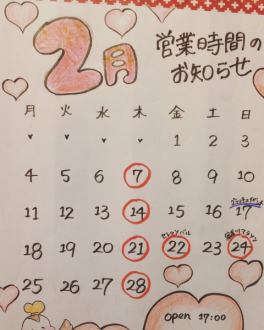 2月
営業時間の
お知らせ
月 火 水 木 金 土 日
1 2 3
4 5 6 7 8 9 10
11 12 13 14 15 16 17
18 19 20 21 22 23 24
25 26 27 28
open 17:00